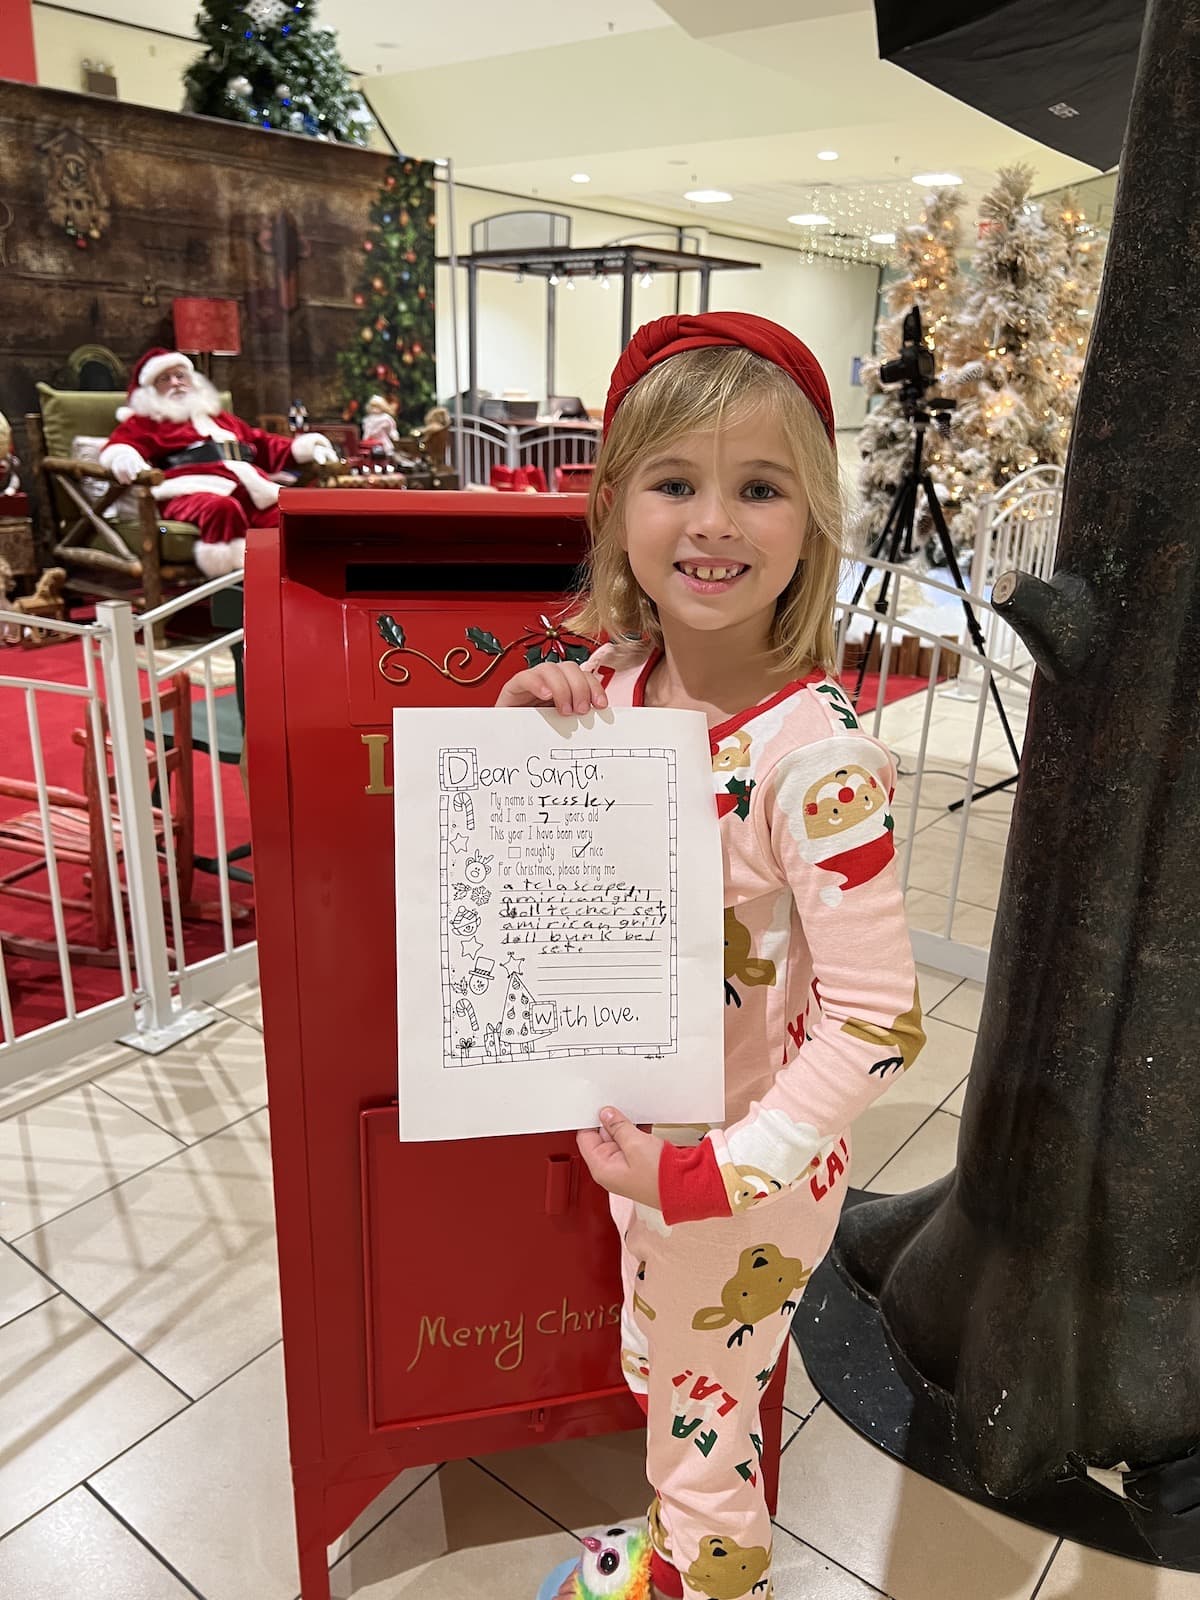 Dear Santa,
My name is Tessley
and I am 7 years old
This year I have been very
naughty nice
For Christmas, please bring me
a telascope,
amirican gril
doll techer set,
amirican gril
doll bunk bed
set.
With Love,
L
Merry Chris
FA
LA!
LA!
FA